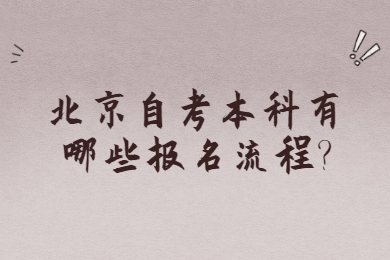 北京自考本科有
哪些报名流程?